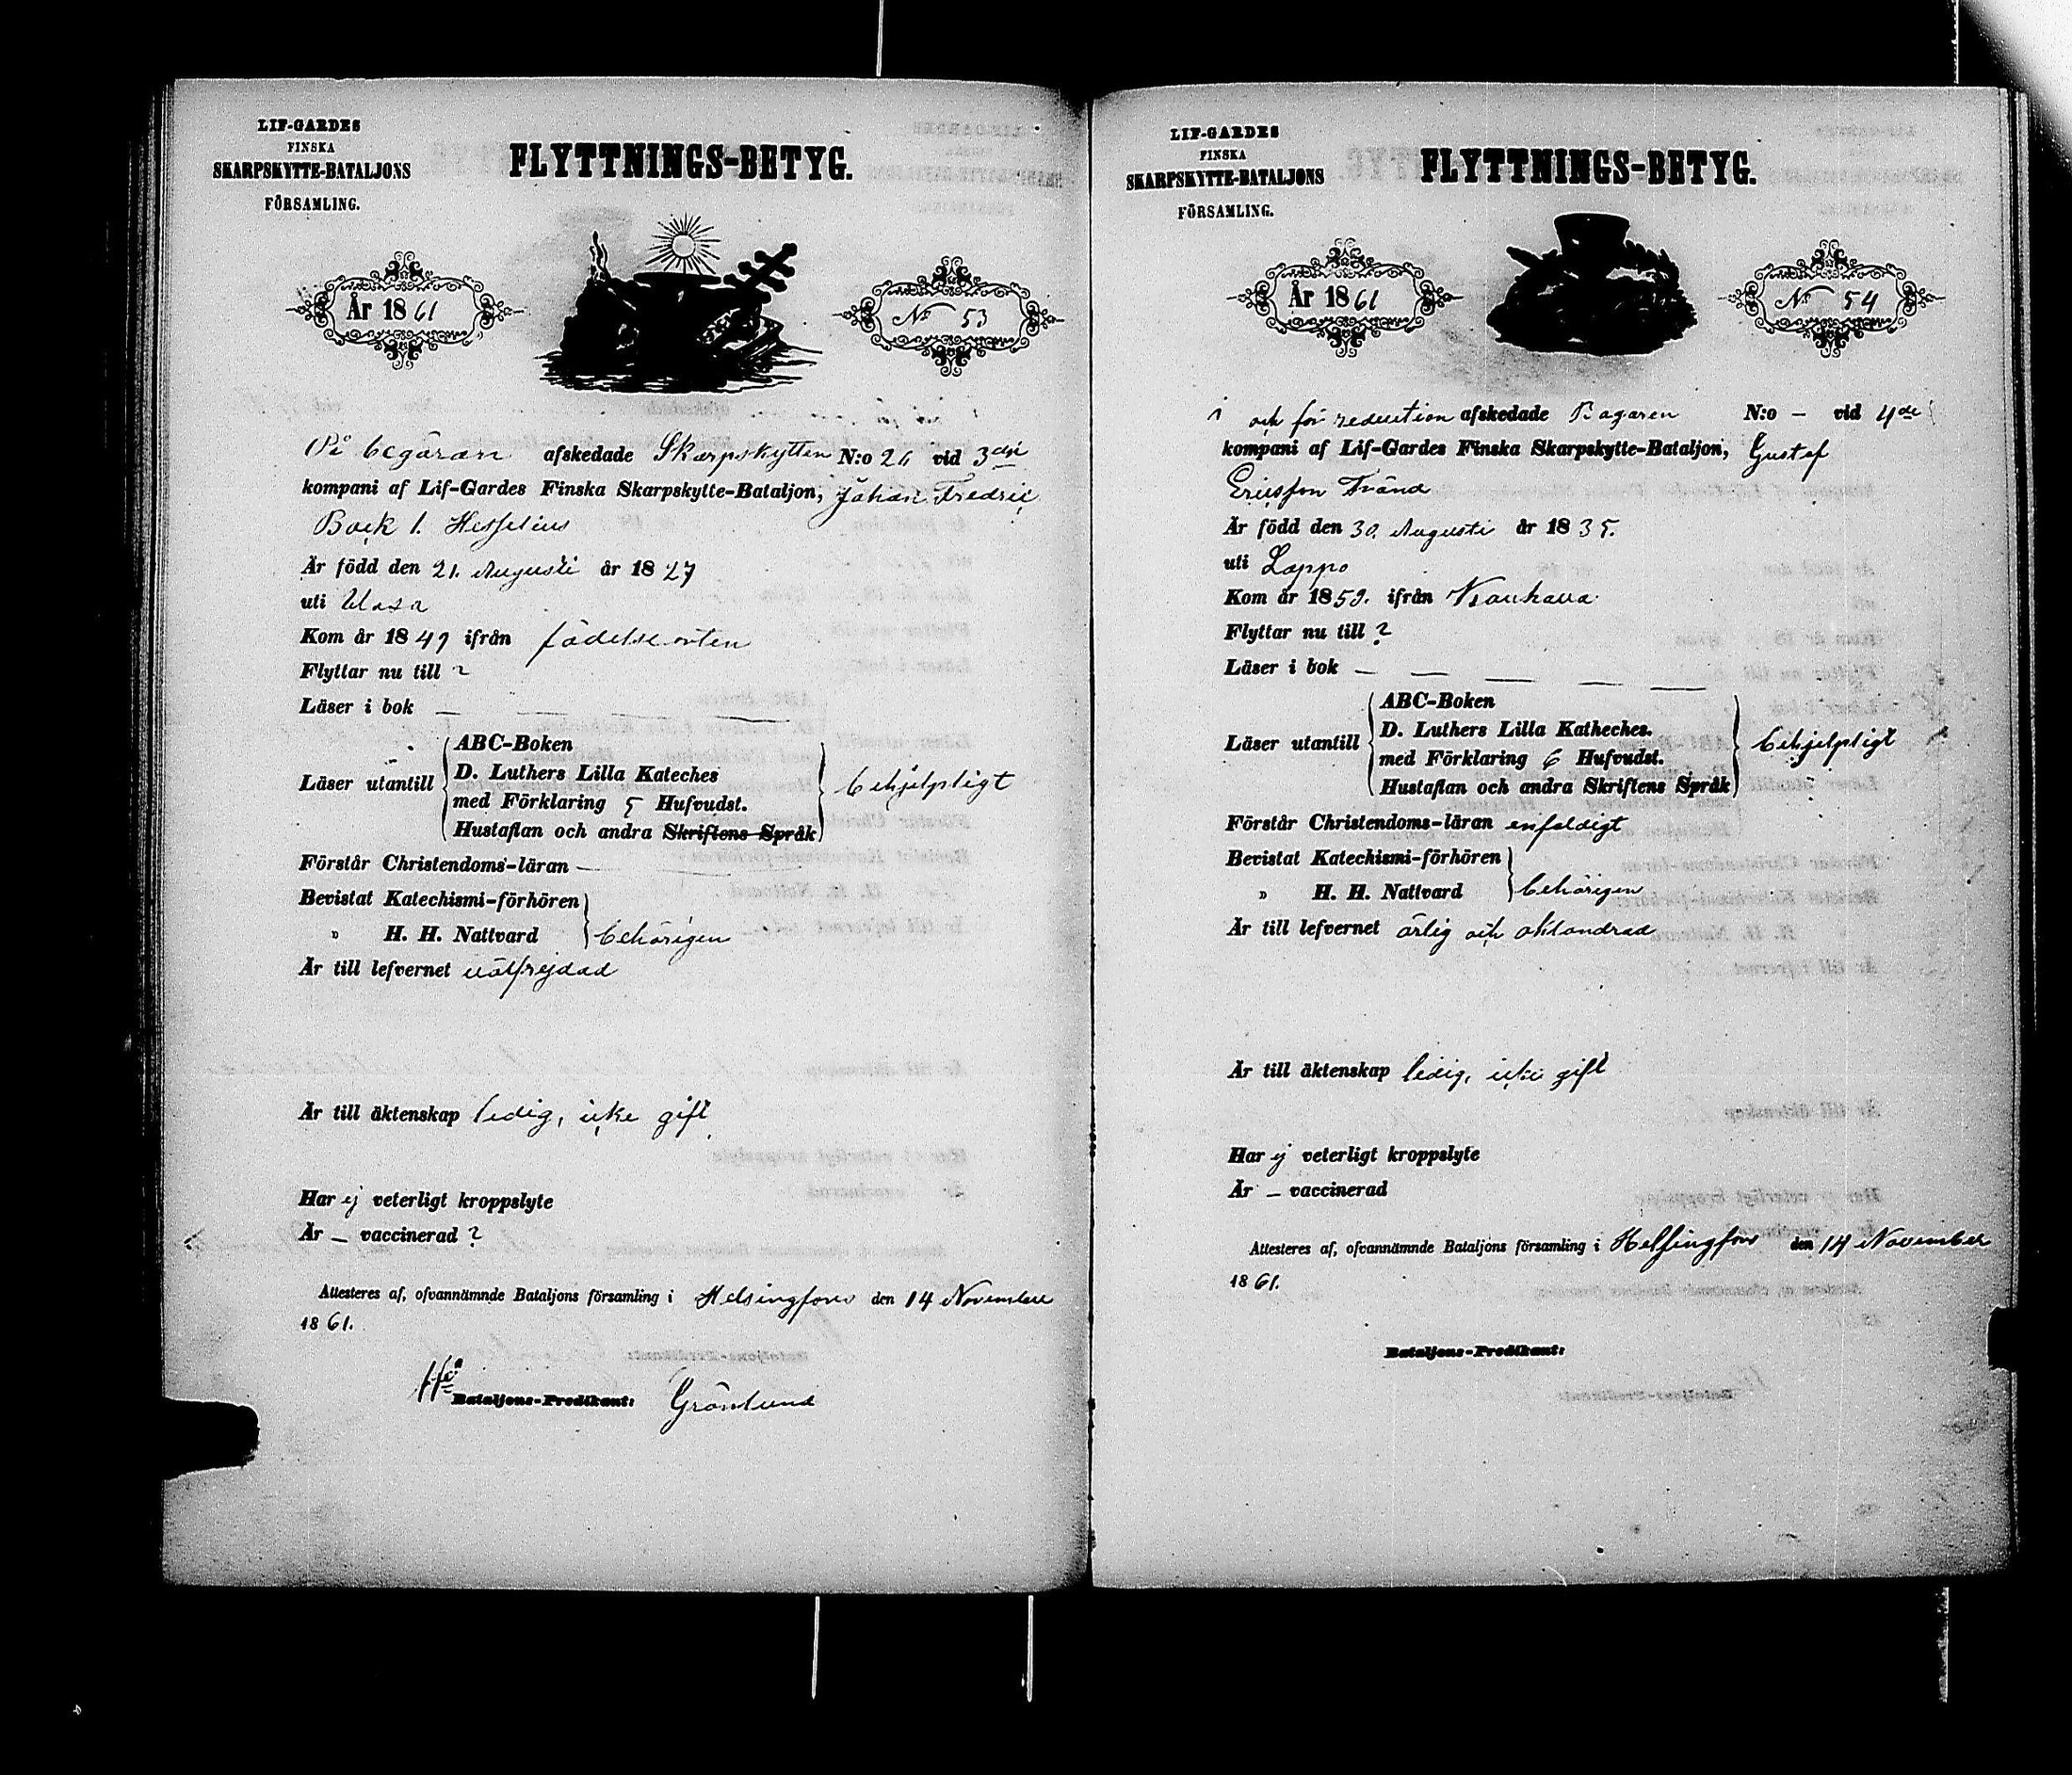 LIF-GARDES
FINSKA
SKARPSKYTTE-BATALJONS
FÖRSAMLING.
FLYTTNINGS-BETYG.
År 1861
No 53
På begäran afskedade Skarpskytten N:o 26 vid 3dje
kompani af Lif-Gardes Finska Skarpskytte-Bataljon, Johan Fredric
Bock l. Hesselius
Är född den 21. Augusti år 1827
uti Wasa
Kom år 1849 ifrån födelseorten
Flyttar nu till ?
Läser i bok — — — —
Läser utantill
ABC-Boken
D. Luthers Lilla Kateches
med Förklaring 5 Hufvudst.
Hustaflan och andra Skriftens Språk
behjelpligt
Förstår Christendoms-läran —
Bevistat Katechismi-förhören
" H. H. Nattvard
behörigen
Är till lefvernet välfrejdad
Är till äktenskap ledig, icke gift
Har ej veterligt kroppslyte
Är — vaccinerad ?
Attesteras af, ofvannämnde Bataljons församling i Helsingfors den 14 November
1861.
Bataljons-Predikant: Grönlund
LIF-GARDES
FINSKA
SKARPSKYTTE-BATALJONS
FÖRSAMLING.
FLYTTNINGS-BETYG.
År 1861
No 54
i och för reduction afskedade Bagaren N:o — vid 4de
kompani af Lif-Gardes Finska Skarpskytte-Bataljon, Gustaf
Ericsson Fränd
Är född den 30. Augusti år 1835.
uti Lappo
Kom år 1859. ifrån Kauhava
Flyttar nu till ?
Läser i bok — — — — —
Läser utantill
ABC-Boken
D. Luthers Lilla Katheches.
med Förklaring 6 Hufvudst.
Hustaflan och andra Skriftens Språk
behjelpligt
Förstår Christendoms-läran enfaldigt
Bevistat Katechismi-förhören
" H. H. Nattvard
behörigen
Är till lefvernet ärlig och oklandrad
Är till äktenskap ledig, icke gift
Har ej veterligt kroppslyte
Är — vaccinerad
Attesteres af, ofvannämnde Bataljons församling i Helsingfors den 14 November
1861.
Bataljons-Predikant: